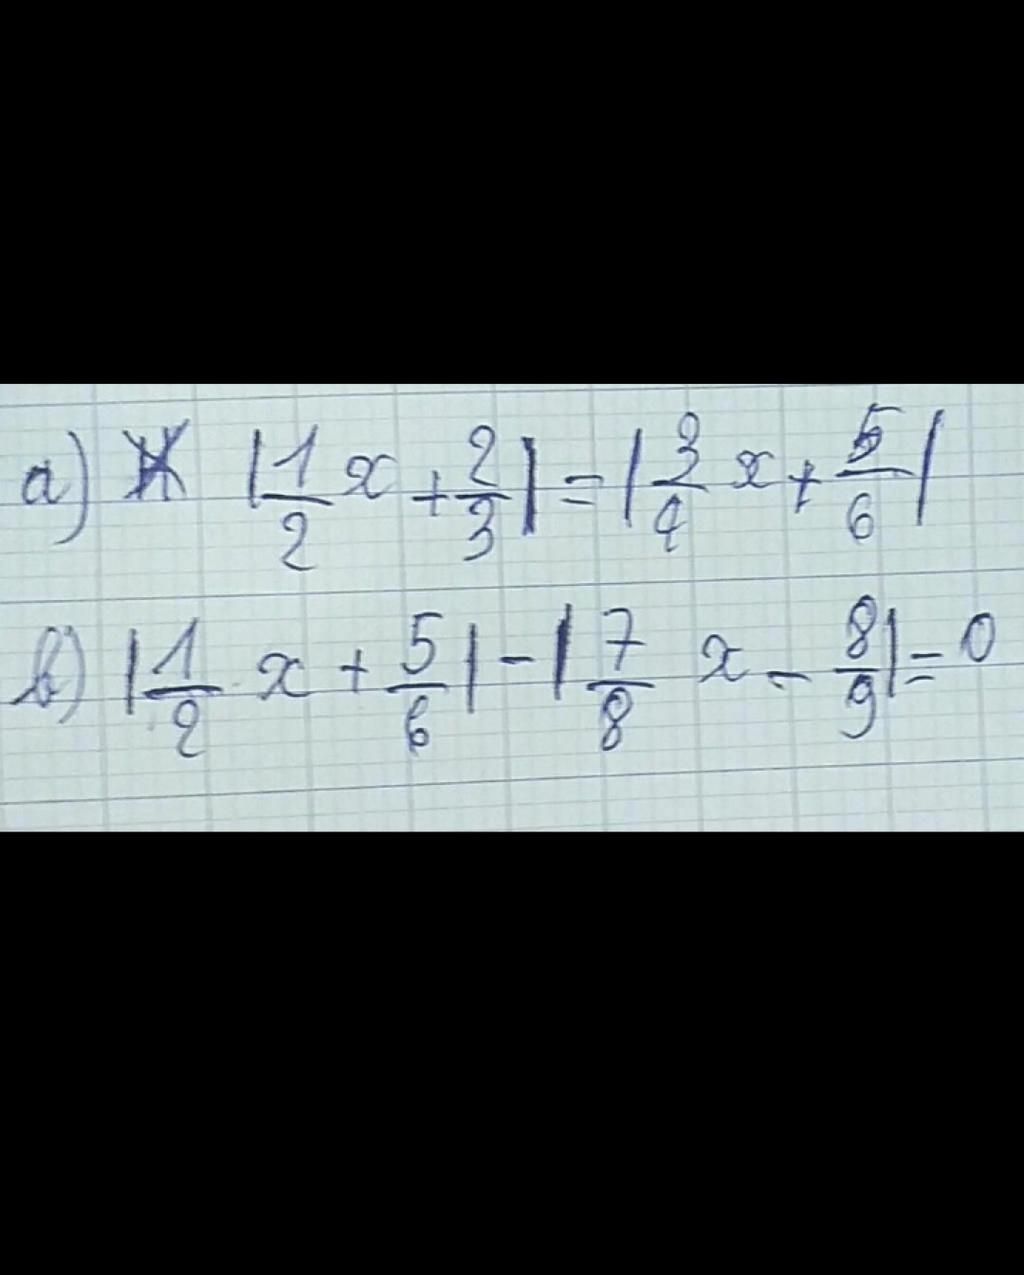 a) |1/2 x + 2/3| = |3/4 x + 5/6|
b) |1/2 x + 5/6| - |7/8 x - 8/9| = 0